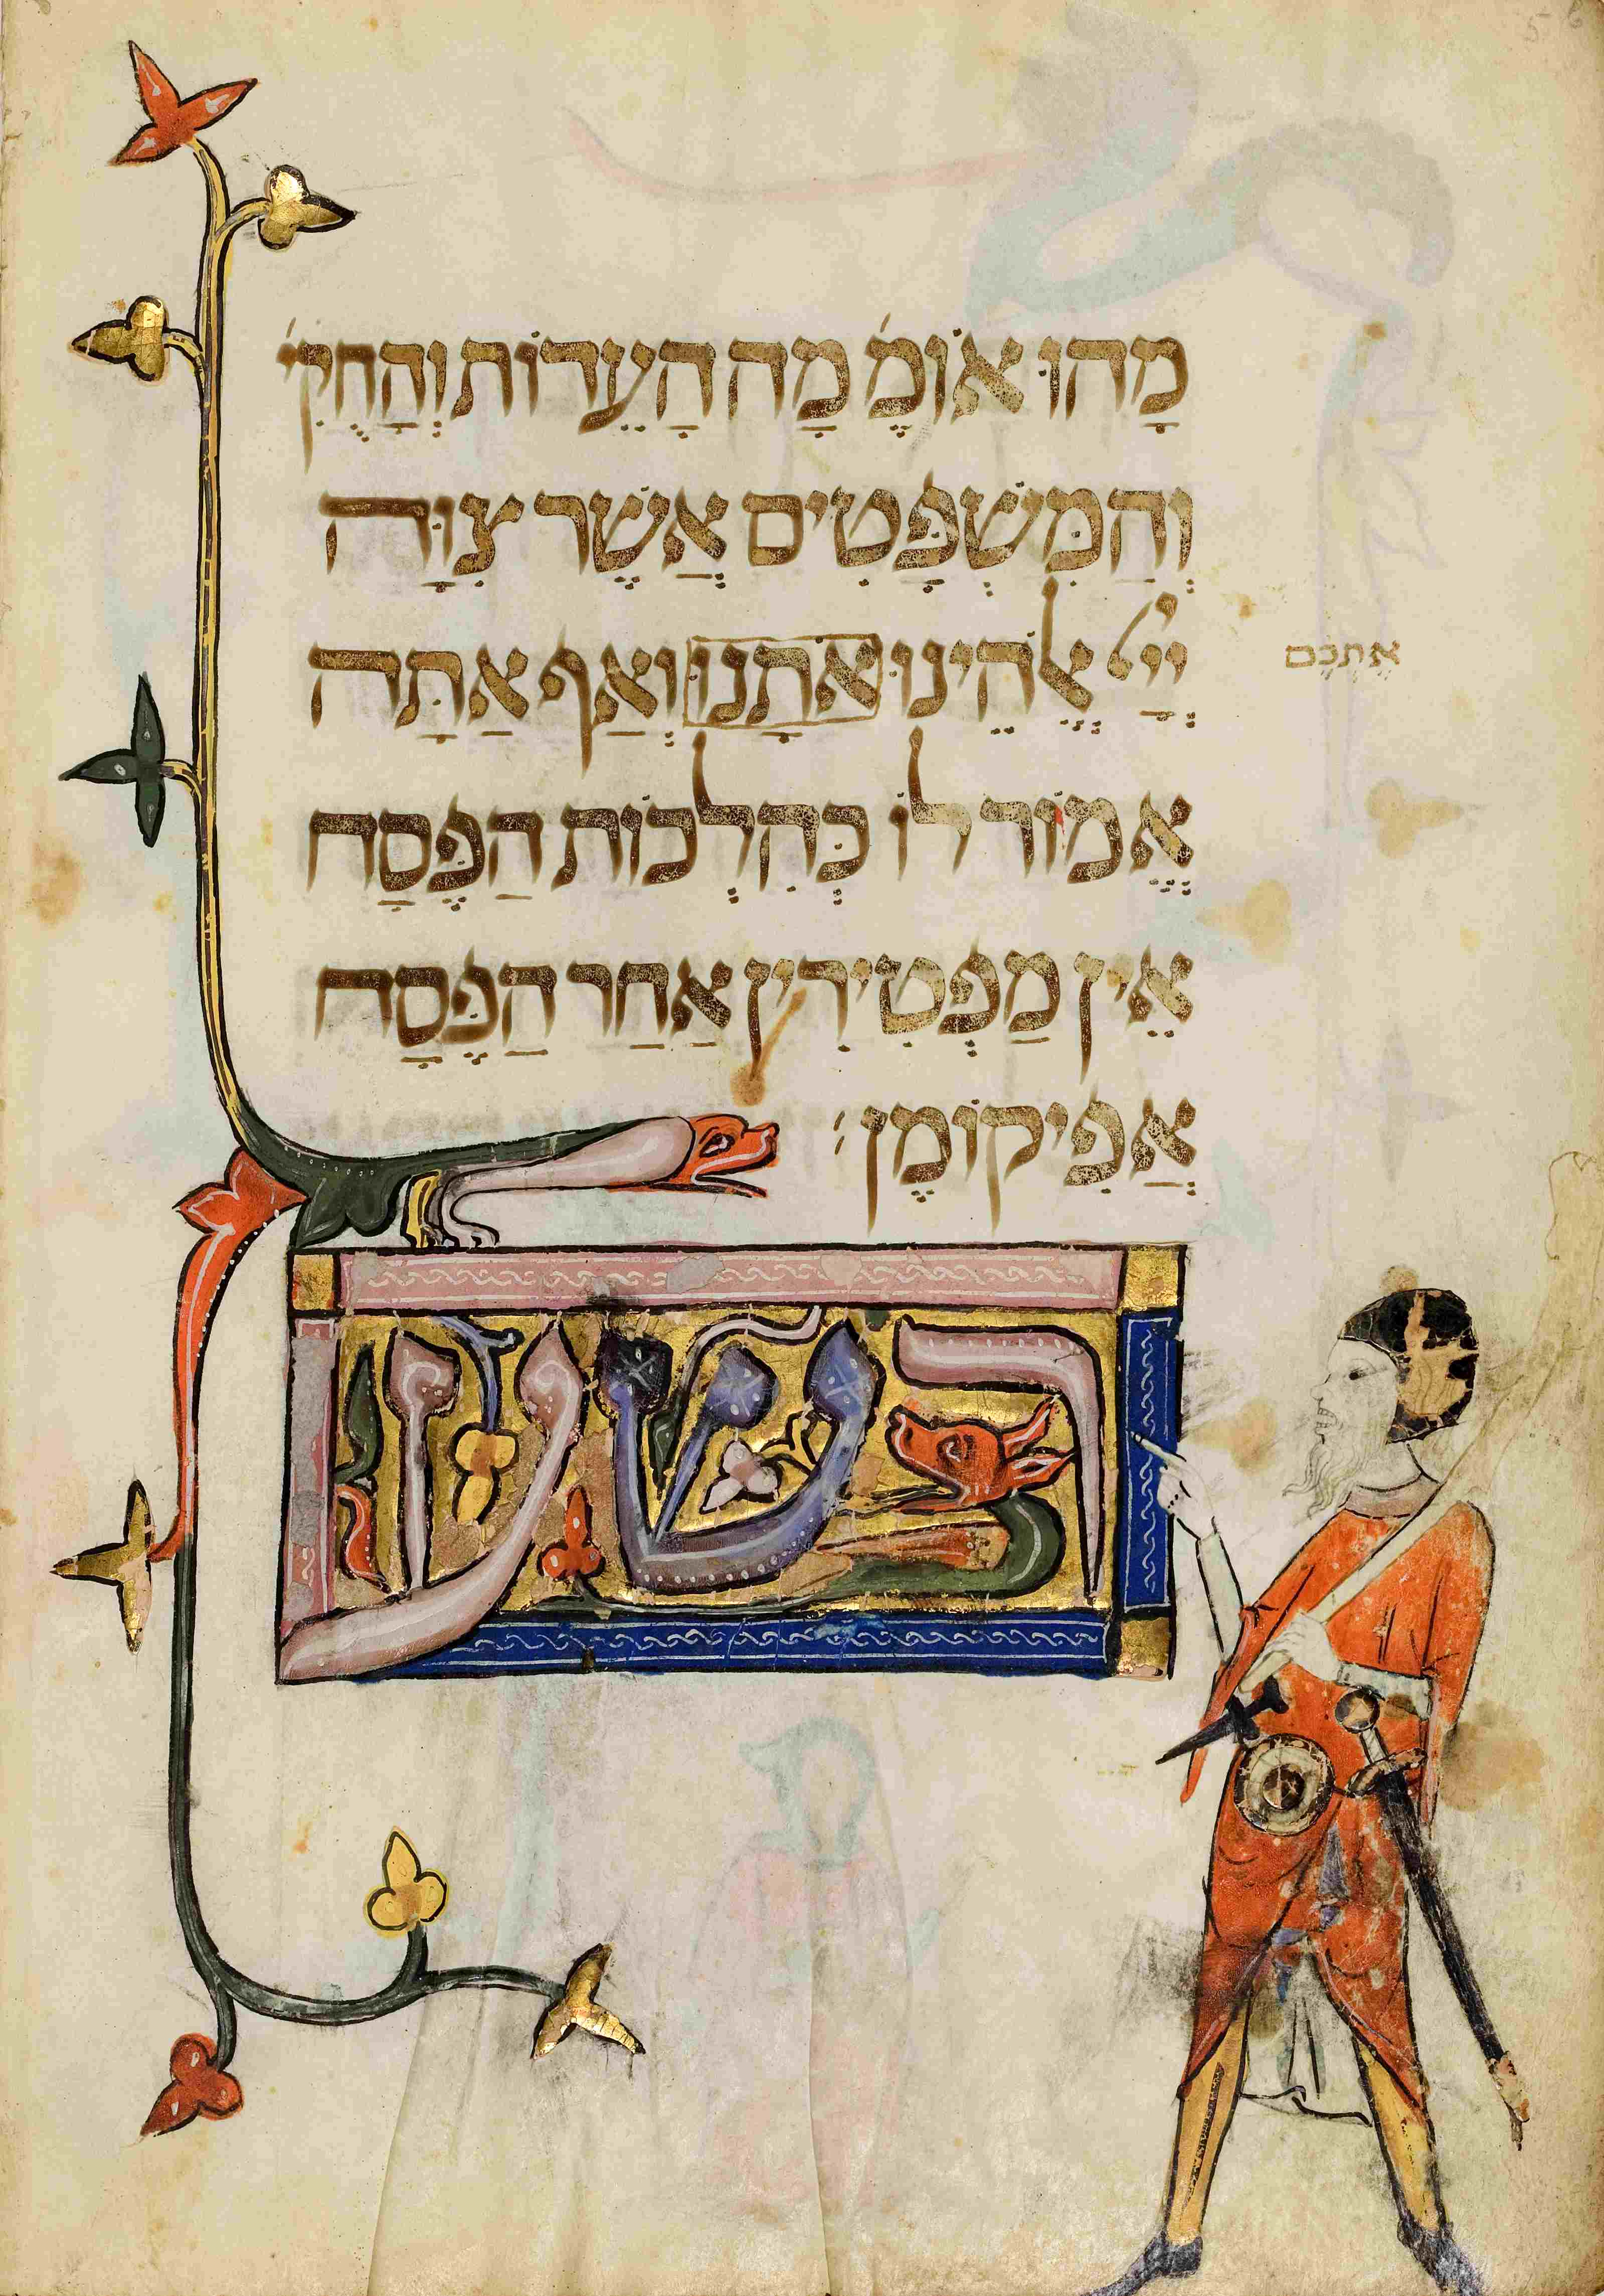 5 6
מָהוּ אוֹמֶ' מָה הָעֵדוֹת וְהַחֻקִּי'
וְהַמִּשְׁפָּטִים אֲשֶׁר צִוָּה
יְיָ אֱלֹהֵינוּ אֹתָנוּ וְאַף אַתָּה
אֶתְכֶם
אֱמוֹר לוֹ כְּהִלְכוֹת הַפֶּסָח
אֵין מַפְטִירִין אַחַר הַפֶּסָח
אֲפִיקוֹמֶן:
רשע